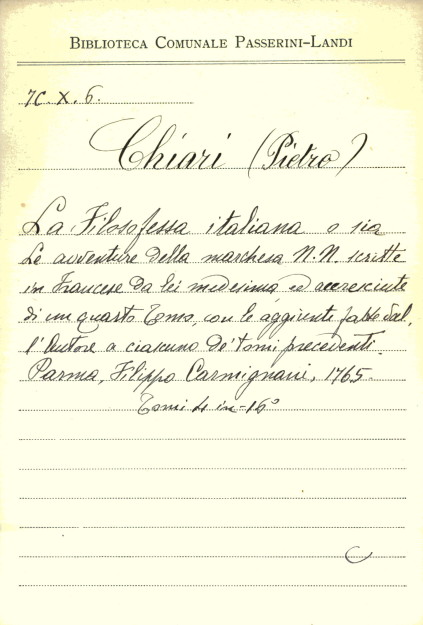 BIBLIOTECA COMUNALE PASSERINI-LANDI
7C. X. 6.
Chiari (Pietro)
La Filosofessa italiana o sia
Le avventure della marchesa N.N. scritte
in Francese da lei medesima ed accresciute
di un quarto Tomo, con le aggiunte fatte dal,
l'Autore a ciascuno de' tomi precedenti.
Parma, Filippo Carmignani, 1765.
Tomi 4 in-16°